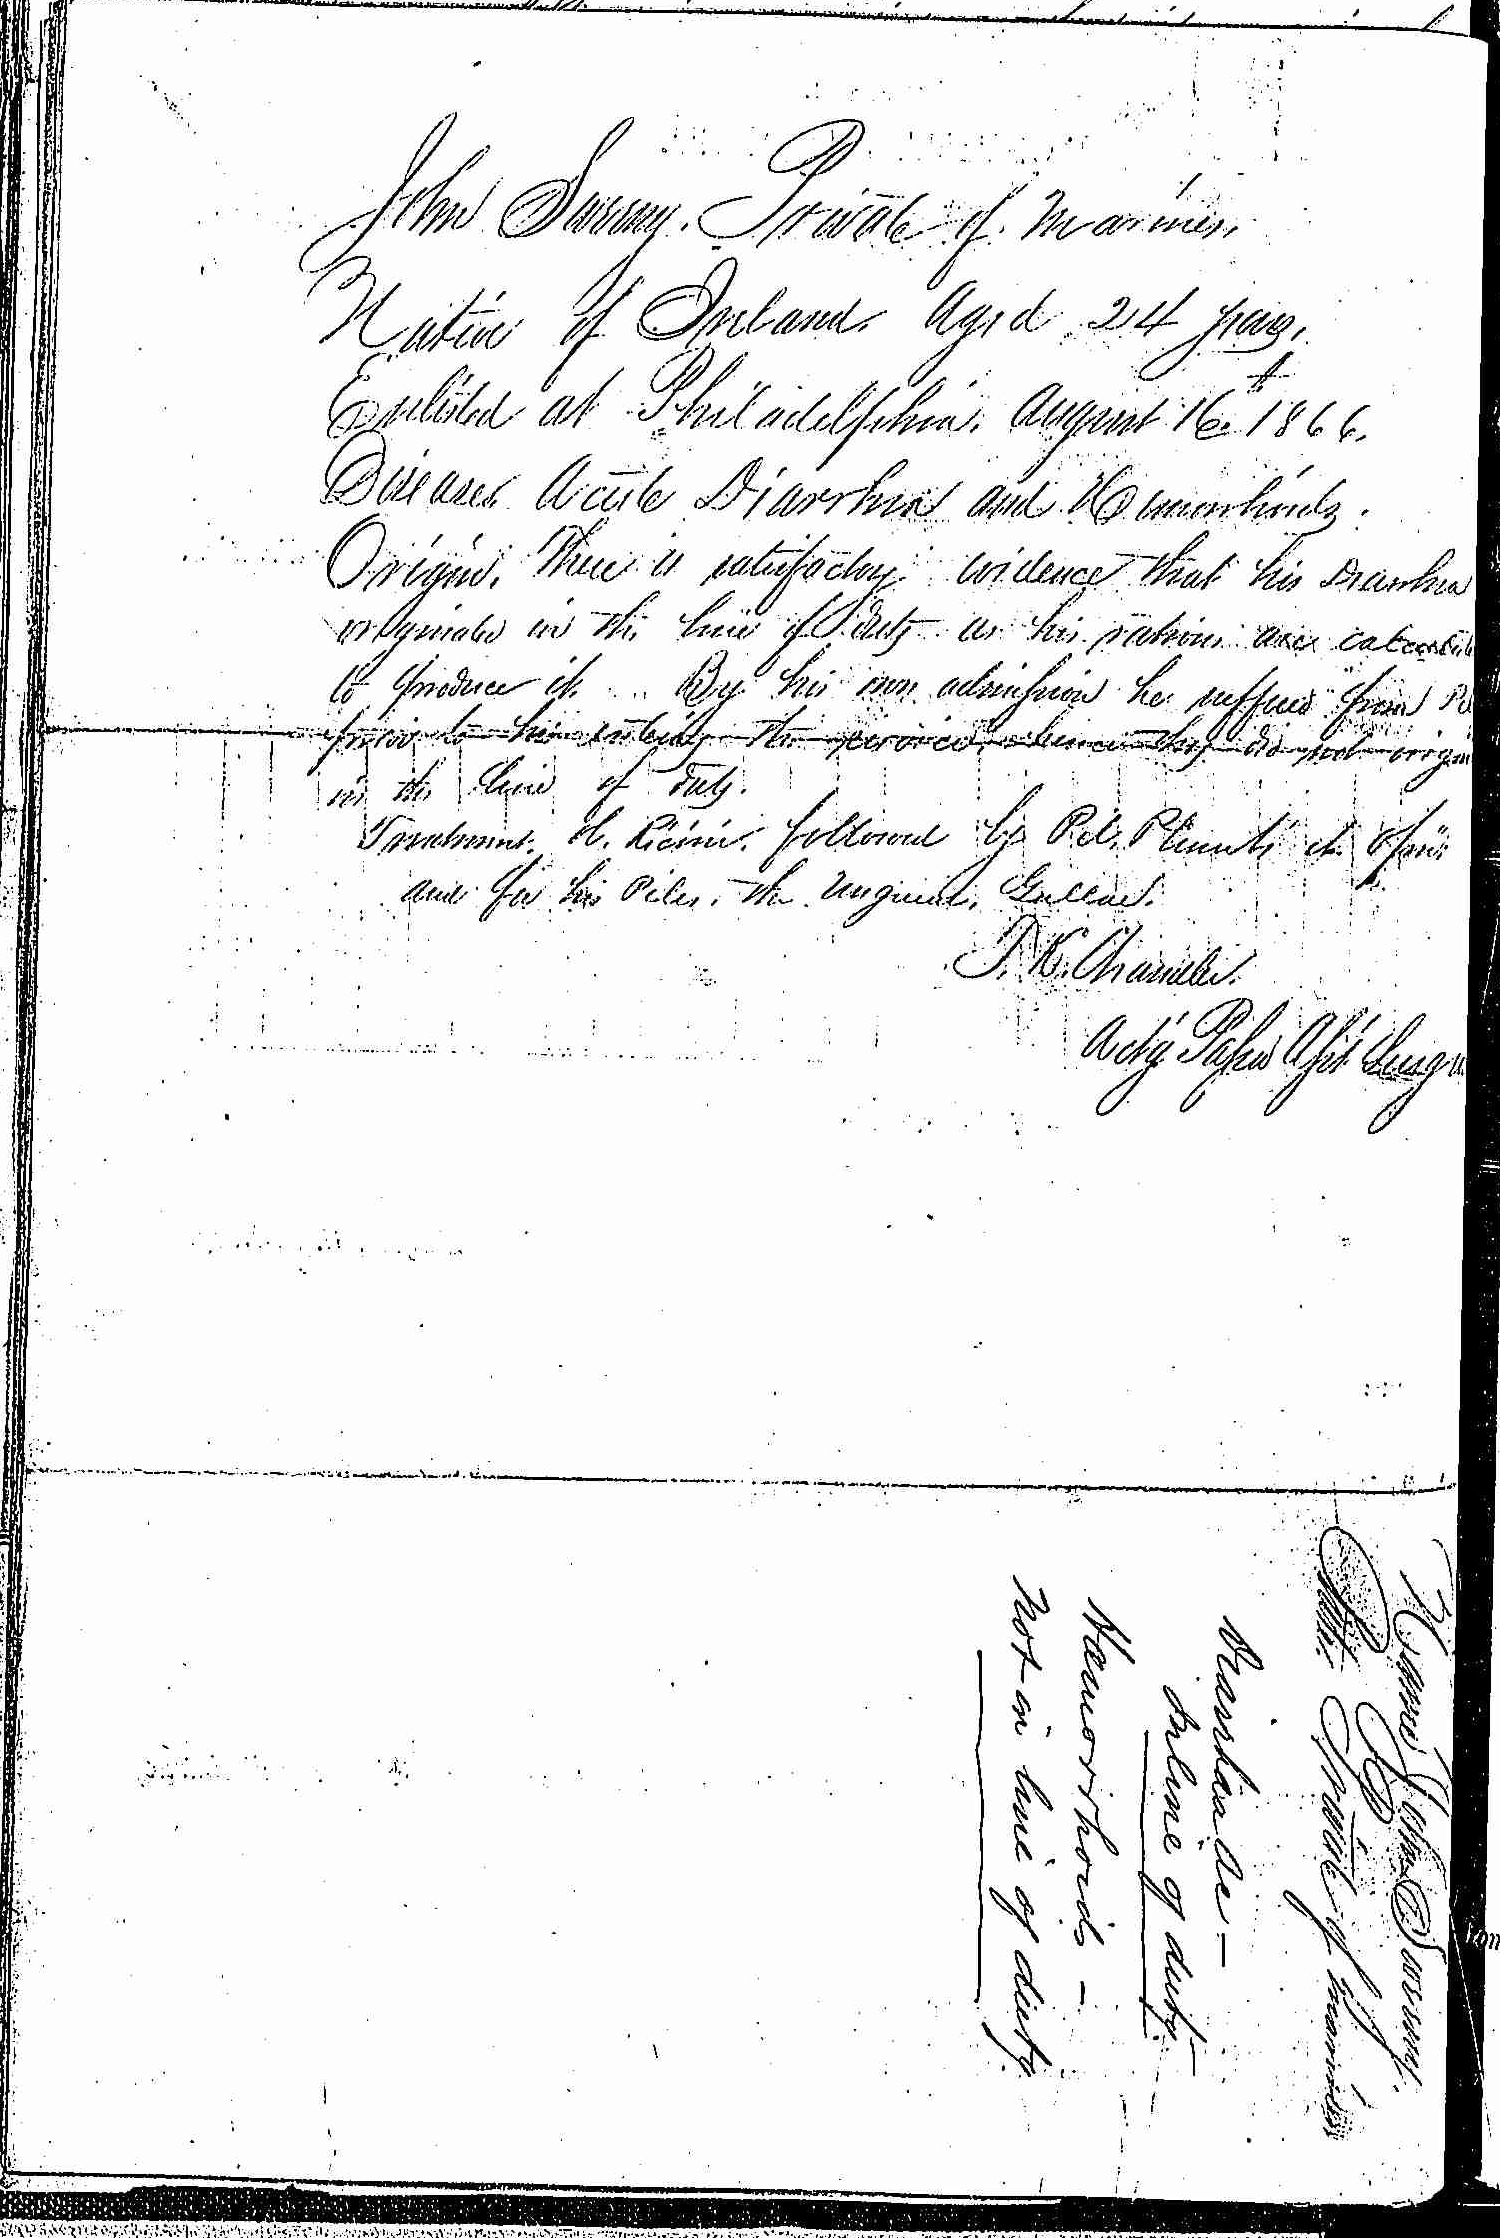 John Sweeny. Private of Marines.
Native of Ireland. Aged 24 years.
Enlisted at Philadelphia. August 16th 1866.
Disease. Acute Diarrhœa and Hemorrhoids.
Origin. There is satisfactory evidence that his Diarrhœa
originated in the line of Duty as his rations are
to produce it. By his own admission he suffered from
prior to his entering the service, hence they did not
in the line of Duty.
Treatment. Ol. Ricini. followed by Pil. Plumbi et Opii.
and for his Piles, the Unguent.
P. K. Chandler.
Act'g Passed Ass't Surg
Case John Sweeny.
Private of Marines
Diarrhœa Ac—
In line of duty
Haemorrhoids —
Not in line of duty